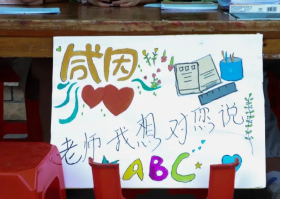 感因
老师我想对您说
ABC